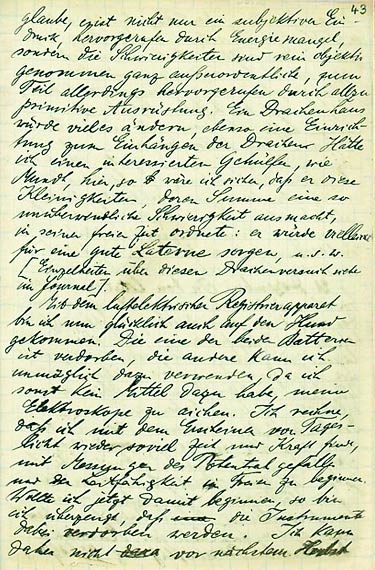 43
glaube, erist nicht nur ein subjektiver Ein-
druck, hervorgerufen durch Energiemangel,
sondern die Schwierigkeiten sind rein objektiv
genommen ganz außerordentliche, zum
Teil allerdings hervorgerufen durch allzu
primitive Ausrüstung. Ein Drachenhaus
würde vieles ändern, ebenso eine Einrich-
tung zum Einhängen der Drachen. Hätte
ich einen interessierten Gehülfen, wie
hier, so wäre ich sicher, daß er diese
Kleinigkeiten, deren Summe eine so
unüberwindliche Schwierigkeit ausmacht,
in seiner freien Zeit ordnete: er würde vielleicht
für eine gute Laterne sorgen, u.s.w.
[Einzelheiten über diesen Drachenversuch siehe
im Journal].
Mit dem luftelektrischen Registrierapparat
bin ich nun glücklich auch auf den Hund
gekommen. Die eine der beiden Batterien
ist verdorben, die andere kann ich
unmöglich dazu verwenden, da ich
sonst kein Mittel dazu habe, meine
Elektroskope zu aichen. Ich rechne,
daß ich mit dem Eintreten von Tages-
licht wieder soviel Zeit und Kraft finde,
mit Messungen des Potentialgefälles
und der Leitfähigkeit im Freien zu beginnen.
Wollte ich jetzt damit beginnen, so bin
ich überzeugt, daß die Instrumente
dabei verdorben werden. Ich kann
daher nicht vor nächstem Herbst